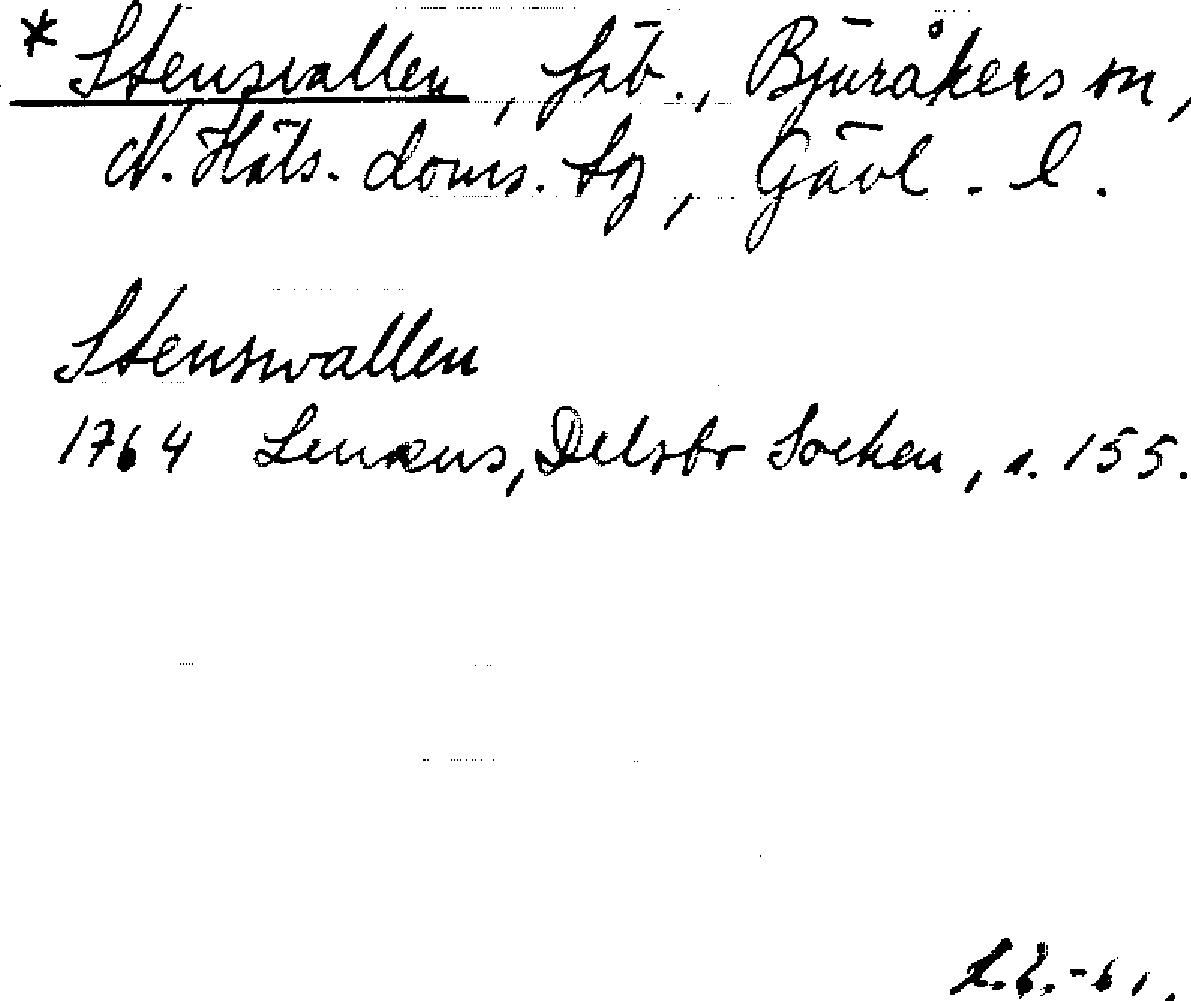 *Stensvallen, fäb., Bjuråkers sn,
N. Häls. doms. tg, Gävl. l.
Stenswallen
1764 Lenæus, Delsbo Socken, s. 155.
-61.